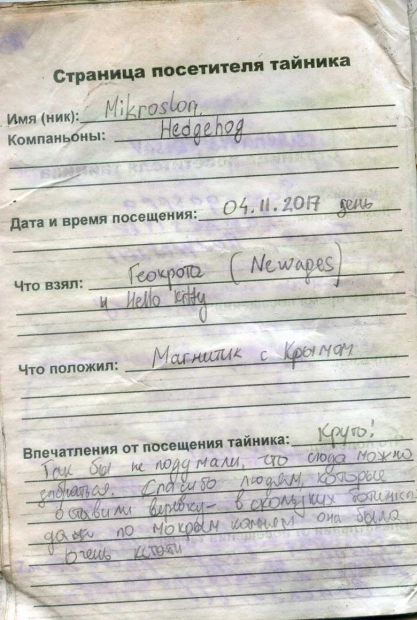 Страница посетителя тайника
Имя (ник): Mikroslon,
Компаньоны: Hedgehog
Дата и время посещения: 04.11.2017 день
Что взял: Геокрота (Newages)
и Hello Kitty
Что положил: Магнитик с Крымом
Впечатления от посещения тайника: Круто!
Так бы не подумали, что сюда можно
забраться. Спасибо людям, которые
оставили веревку - в скользких ботинках
даже по мокрым камням она была
очень кстати